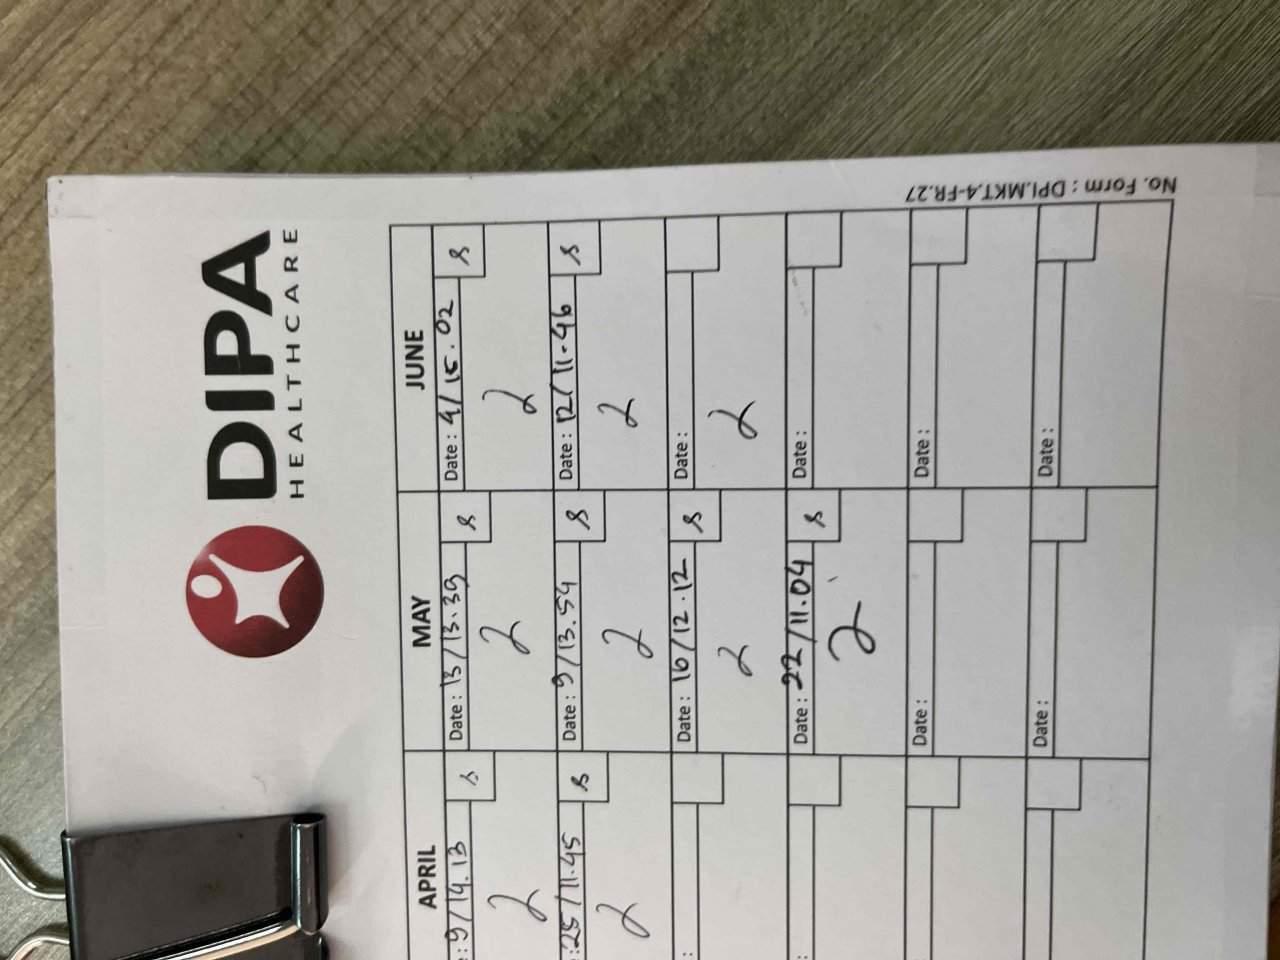 DIPA
HEALTHCARE
No. Form : DPI.MKT.4-FR.27
APRIL MAY JUNE
: 9/14.13 s Date : 13/13.39 s Date : 4/15.02 s
2 2 2
: 25/11.45 s Date : 9/13.54 s Date : 12/11.46 s
2 2 2
: Date : 16/12.12 s Date :
2 2
Date : 22/11.04 s Date :
2
: Date : Date :
: Date : Date :